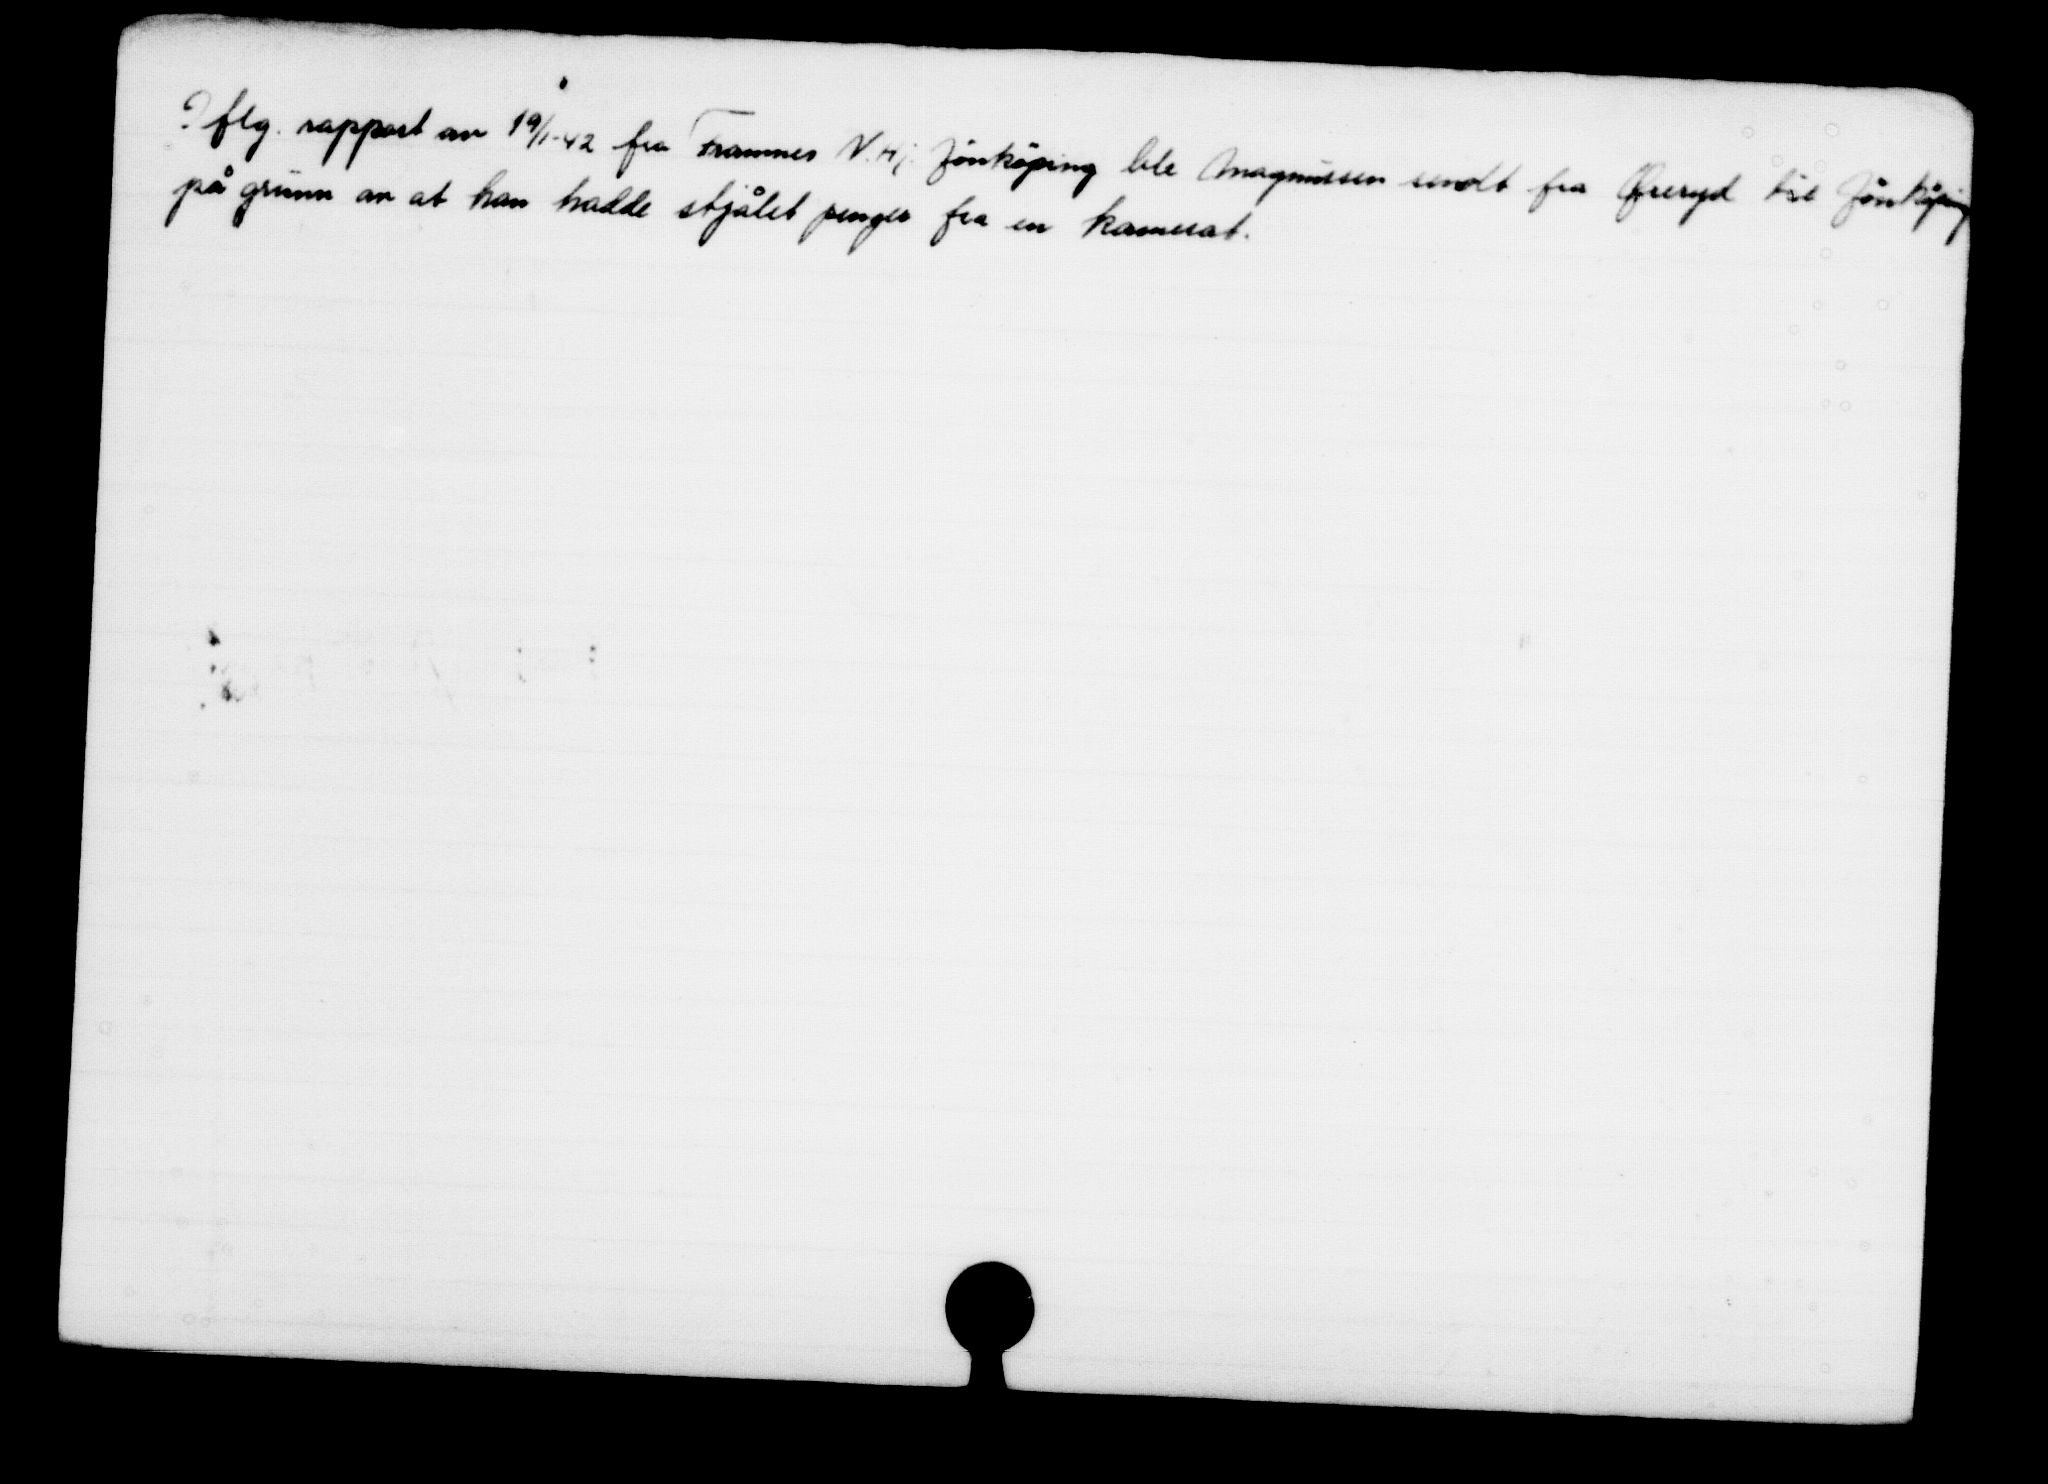 I flg. rapport av 19/1-42 fra Framnes V.Hj. Jönköping ble Magnussen sendt fra Øreryd til Jönköping
på grunn av at han hadde stjålet penger fra en kamerat.